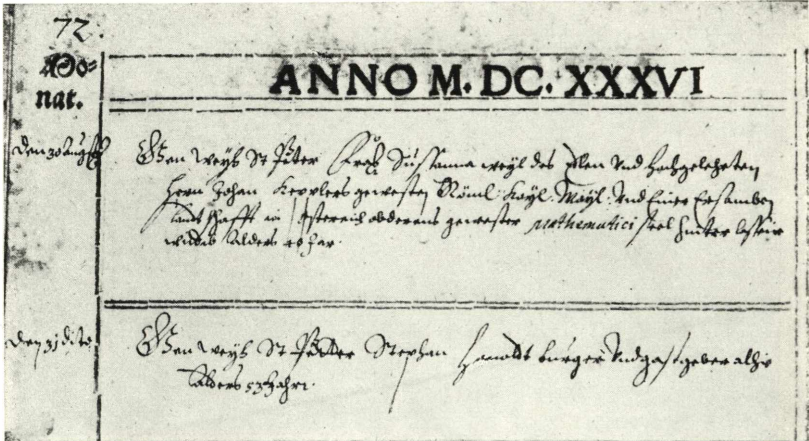 72.
Mo=
nat.
ANNO M. DC. XXXVI
den 30 Augusti
Gen Weyh St Peter Frau Susanna weyl des Edlen Vnd Hochgelehrten
Herrn Johan Kepplers gewesten Röml: Kayl: Mayl: Vnd Einer Ersamben
Landtschafft in Österreich ob der ens gewester Mathematici seel hinter lassene
wittib Alders
den 31 dito
Gen Weyh St Peter Stephan burger Vnd gastgeber alhie
Alders 53 Jahr.